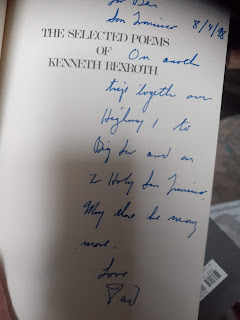 For Ben
San Francisco 8/4/98
THE SELECTED POEMS
OF On another
KENNETH REXROTH
trip together over
Highway 1 to
Big Sur and on
2 Holy San Francisco.
May there be many
more.
Love
Dad